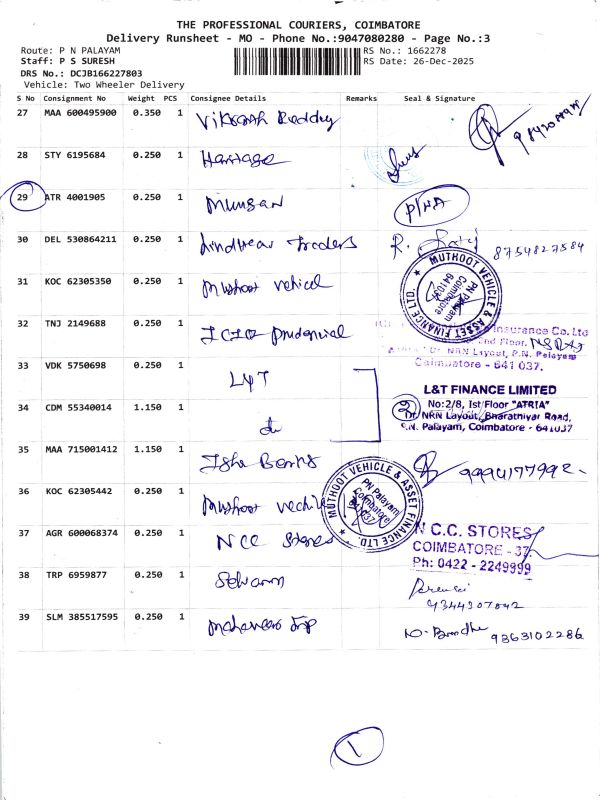 THE PROFESSIONAL COURIERS, COIMBATORE
Delivery Runsheet - MO - Phone No.:9047080280 - Page No.:3
Route: P N PALAYAM
RS No.: 1662278
Staff: P S SURESH
RS Date: 26-Dec-2025
DRS No.: DCJB166227803
Vehicle: Two Wheeler Delivery
S No Consignment No Weight PCS Consignee Details Remarks Seal & Signature
27 MAA 600495900 0.350 1 Vikranth Reddy
28 STY 6195684 0.250 1
29 ATR 4001905 0.250 1 Murugan P/NA
30 DEL 530864211 0.250 1 Traders R. 8754827584
31 KOC 62305350 0.250 1 Muthoot vehicel
MUTHOOT VEHICLE & ASSET FINANCE LTD.
PN Palayam
Coimbatore
641037
32 TNJ 2149688 0.250 1 ICIC Prudential
Insurance Co. Ltd
2nd Floor,
NRN Layout, P.N. Palayam
Coimbatore - 641 037.
33 VDK 5750698 0.250 1 L&T
L&T FINANCE LIMITED
No:2/8, Ist Floor "ATRIA"
Dr. NRN Layout, Bharathiyar Road,
P.N. Palayam, Coimbatore - 641037
2
34 CDM 55340014 1.150 1 do
35 MAA 715001412 1.150 1 Isha Banks 9994177992
36 KOC 62305442 0.250 1 Muthoot vechile
MUTHOOT VEHICLE & ASSET FINANCE LTD.
PN Palayam
Coimbatore
641037
37 AGR 600068374 0.250 1 NCC Stores
N.C.C. STORES
COIMBATORE - 37.
Ph: 0422 - 2249999
38 TRP 6959877 0.250 1 Selvam
39 SLM 385517595 0.250 1 9363102286
1